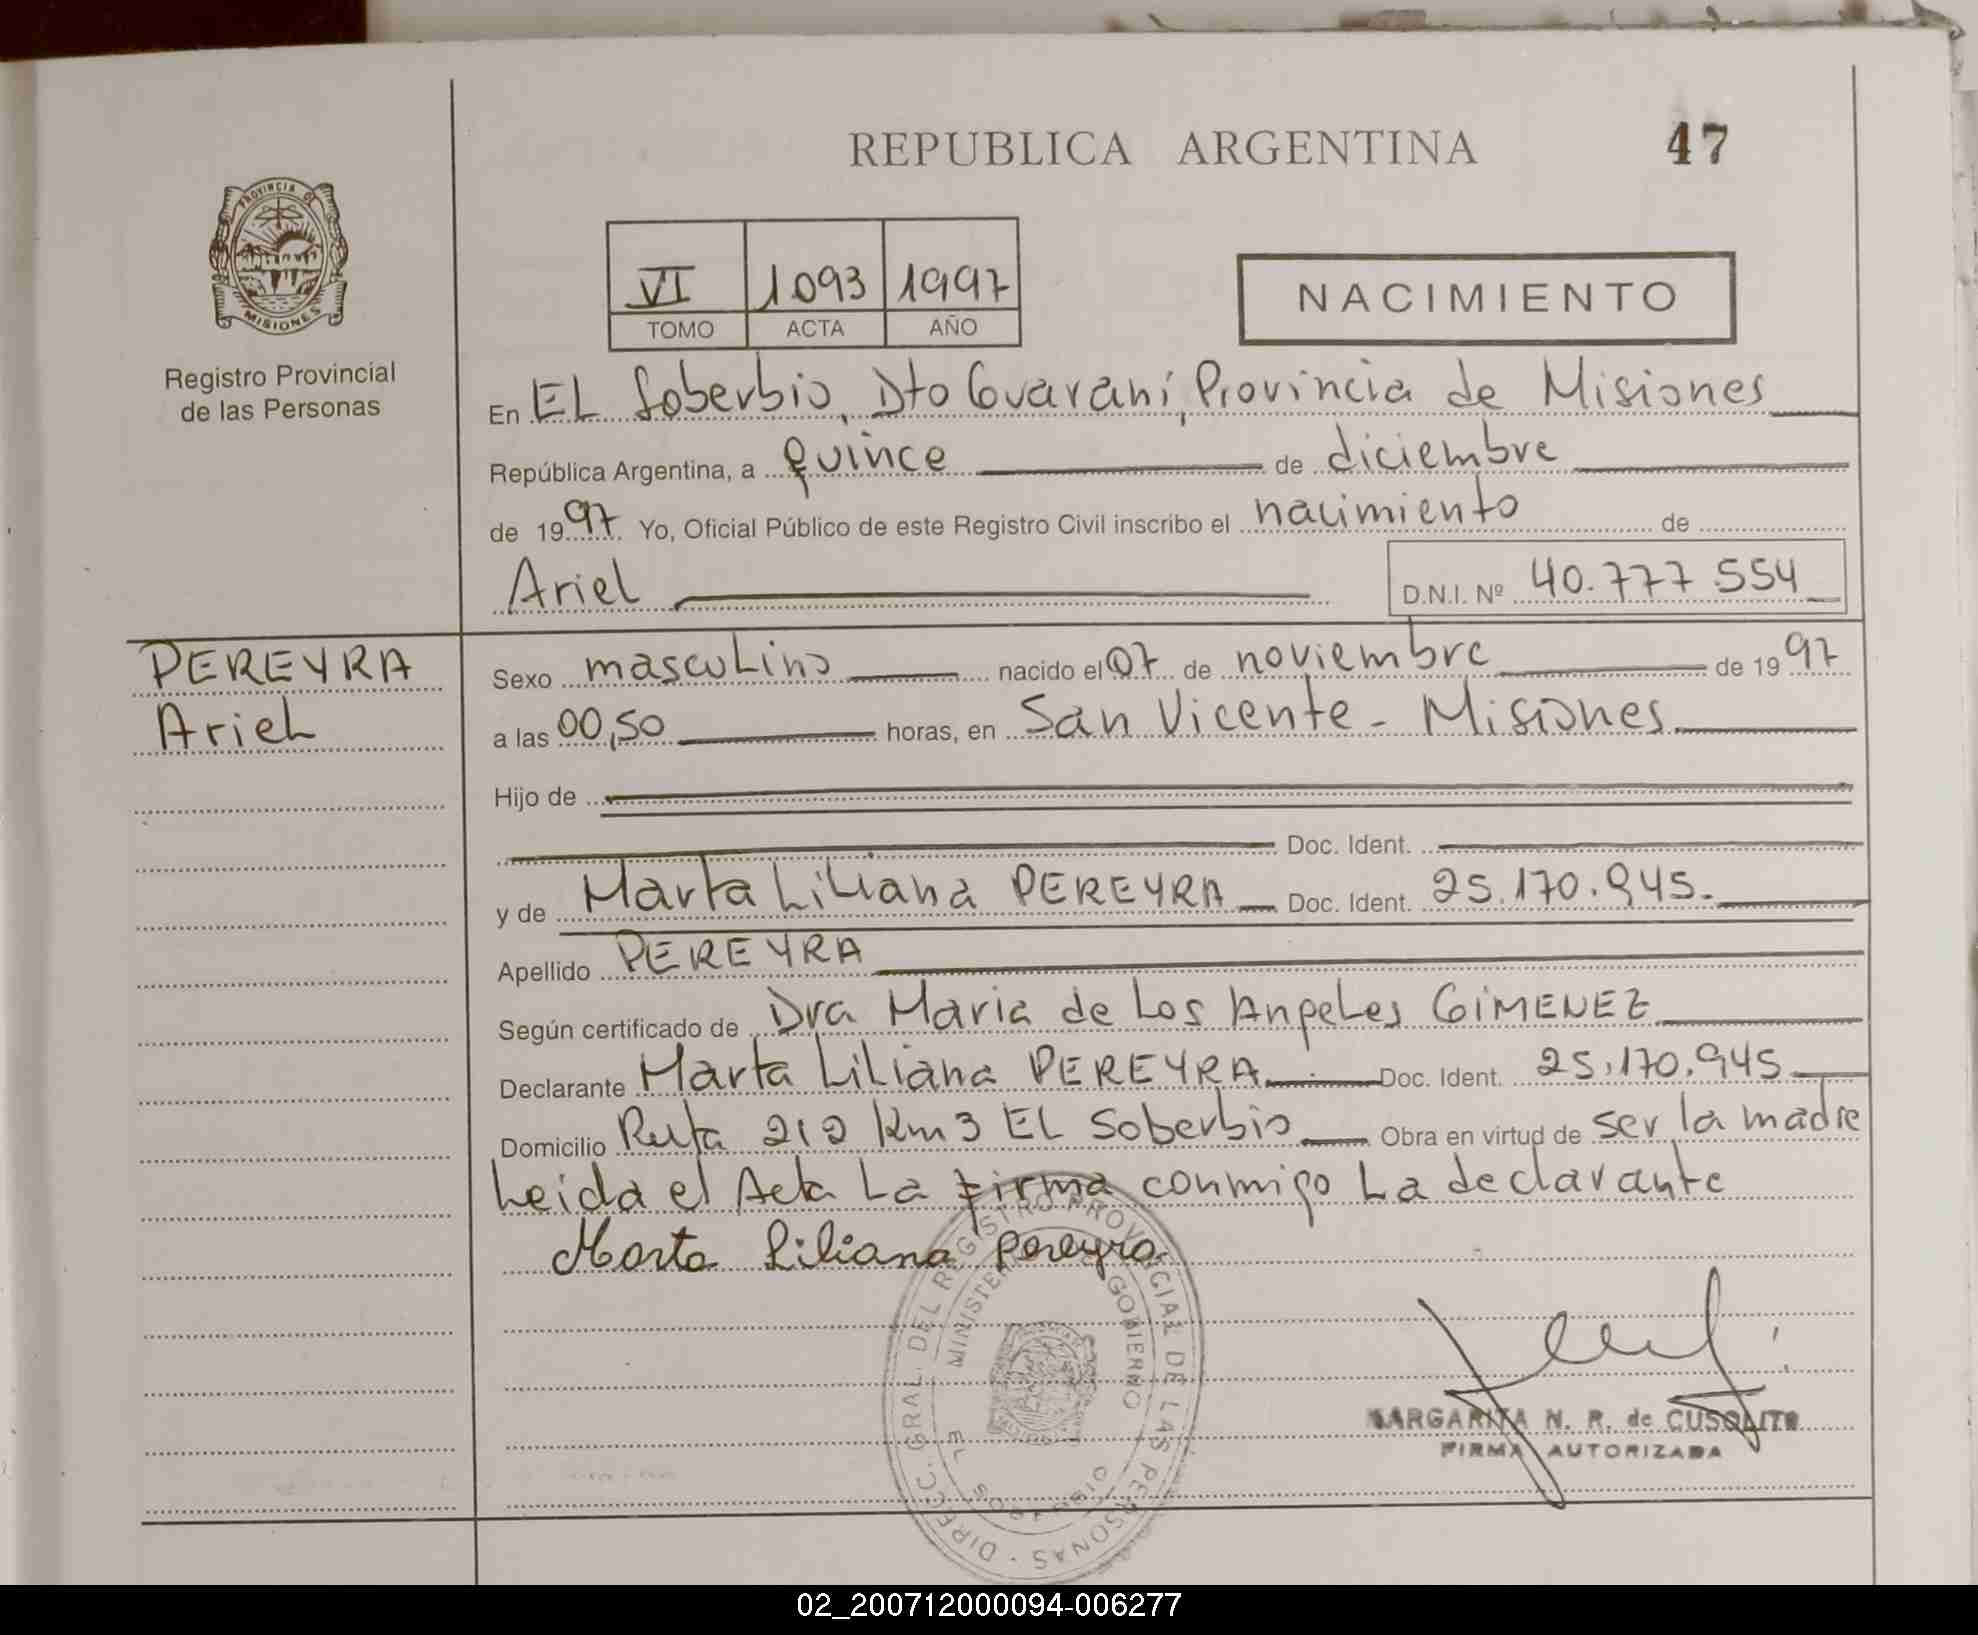 REPUBLICA ARGENTINA
47
PROVINCIA DE
MISIONES
Registro Provincial
de las Personas
VI 1093 1997
TOMO ACTA AÑO
NACIMIENTO
En EL Soberbio, Dto Guaraní, Provincia de Misiones
República Argentina, a quince de diciembre
de 1997 Yo, Oficial Público de este Registro Civil inscribo el nacimiento de
Ariel
D.N.I. Nº 40.777.554
PEREYRA
Ariel
Sexo masculino nacido el 07 de noviembre de 1997
a las 00,50 horas, en San Vicente - Misiones
Hijo de
Doc. Ident.
y de Marta Liliana PEREYRA Doc. Ident. 25.170.945.
Apellido PEREYRA
Según certificado de Dra Maria de Los Angeles GIMENEZ
Declarante Marta Liliana PEREYRA Doc. Ident. 25.170.945
Domicilio Ruta 212 Km 3 EL Soberbio Obra en virtud de ser la madre
Leida el Acta La firma conmigo La declarante
Marta Liliana Pereyra
DIRECC. GRAL. DEL REGISTRO PROVINCIAL DE LAS PERSONAS
MINISTERIO GOBIERNO
EL SOBERBIO
MARGARITA N. R. de CUSOLITO
FIRMA AUTORIZADA
02_200712000094-006277